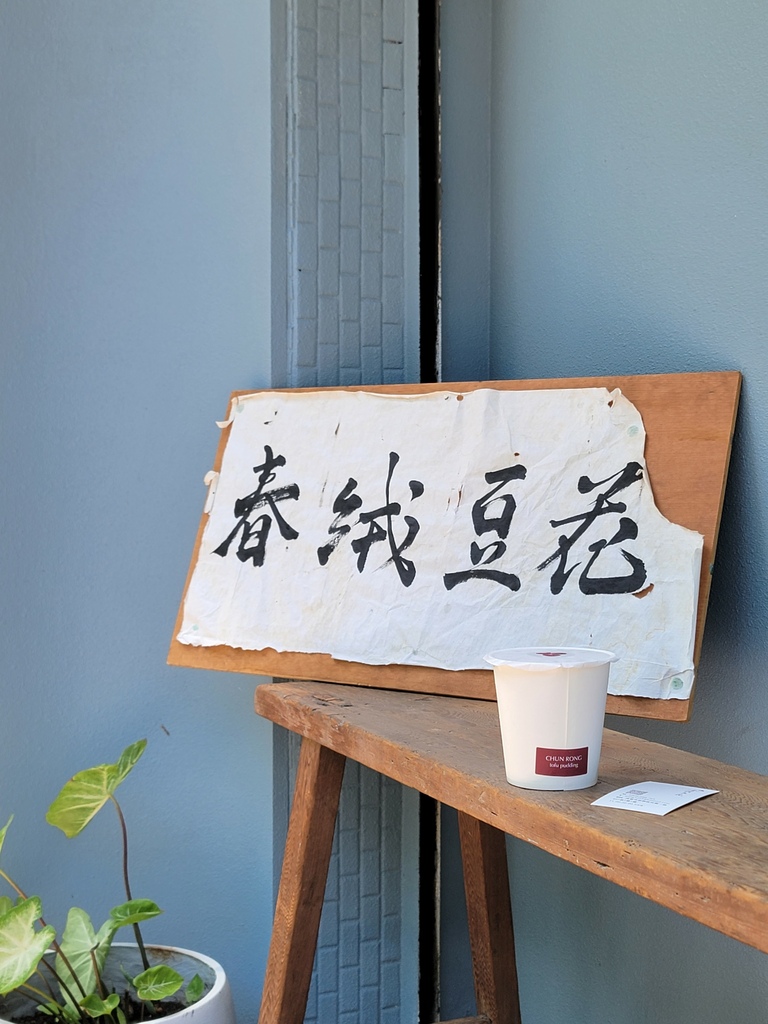 春絨豆花
CHUN RONG
tofu pudding